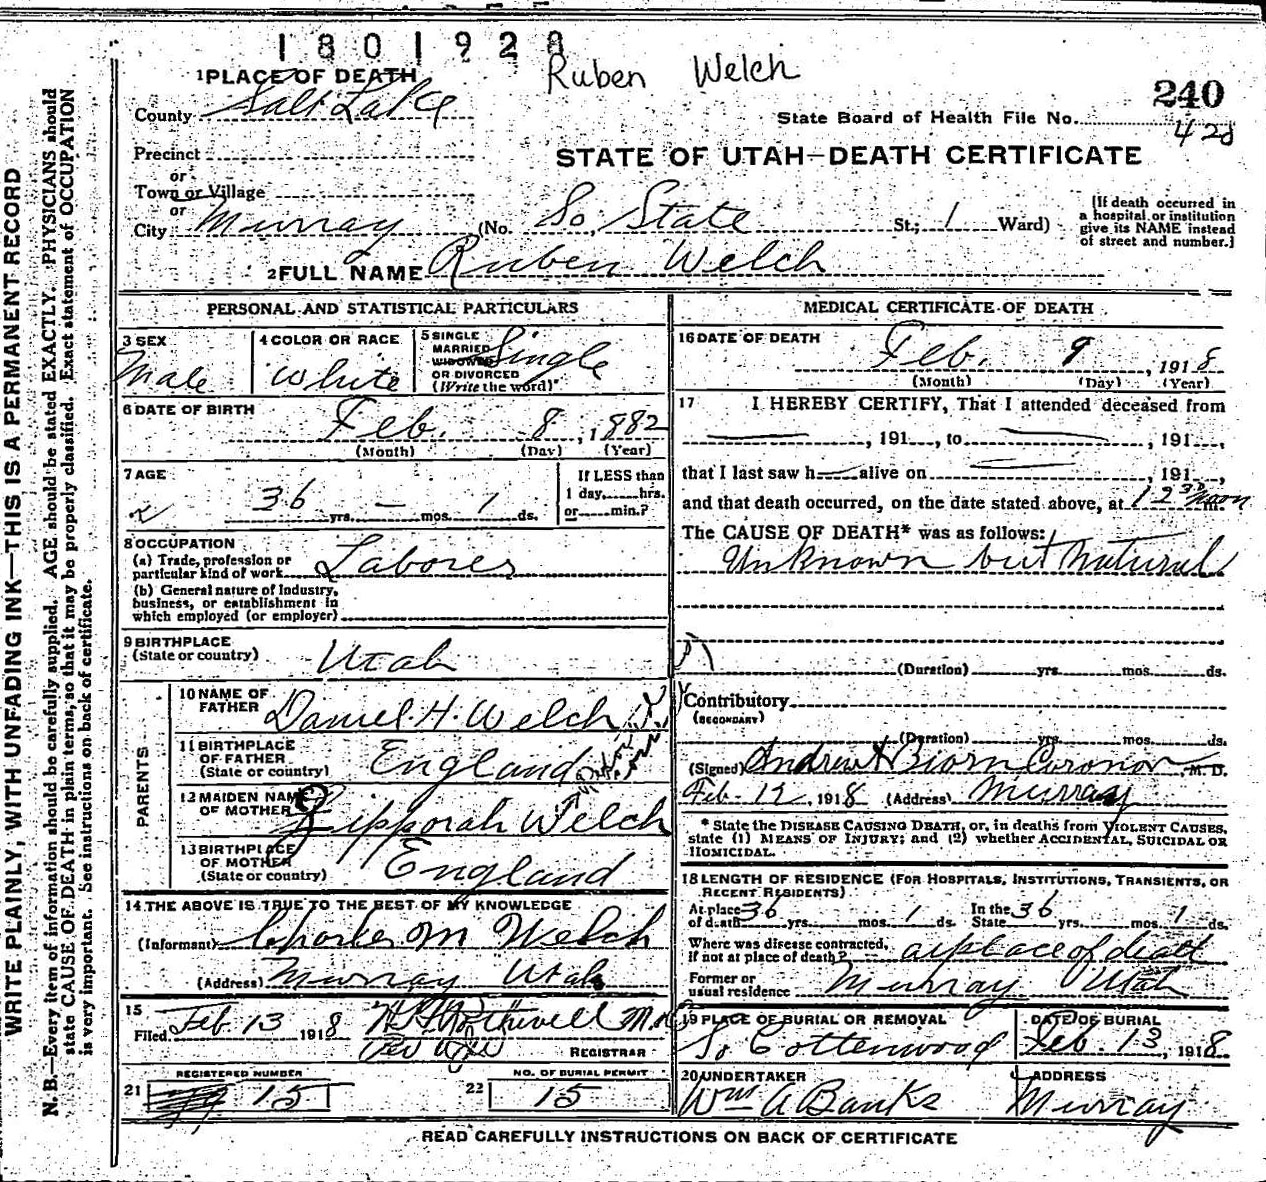 1801928
Ruben Welch
1 PLACE OF DEATH
County Salt Lake
240
State Board of Health File No.
428
Precinct
or
Town or Village
or
STATE OF UTAH—DEATH CERTIFICATE
City Murray (No. So, State St.; 1 Ward)
[If death occurred in
a hospital or institution
give its NAME instead
of street and number.]
2 FULL NAME Ruben Welch
WRITE PLAINLY, WITH UNFADING INK—THIS IS A PERMANENT RECORD
N. B.—Every item of information should be carefully supplied. AGE should be stated EXACTLY. PHYSICIANS should
state CAUSE OF DEATH in plain terms, so that it may be properly classified. Exact statement of OCCUPATION
is very important. See instructions on back of certificate.
PERSONAL AND STATISTICAL PARTICULARS
3 SEX
Male
4 COLOR OR RACE
White
5 SINGLE
MARRIED
WIDOWED
OR DIVORCED
(Write the word)
Single
6 DATE OF BIRTH
Feb. 8, 1882
(Month) (Day) (Year)
7 AGE
36 yrs. — mos. 1 ds.
If LESS than
1 day, hrs.
or min.?
8 OCCUPATION
(a) Trade, profession or
particular kind of work Laborer
(b) General nature of Industry,
business, or establishment in
which employed (or employer)
9 BIRTHPLACE
(State or country) Utah
PARENTS
10 NAME OF
FATHER Daniel. H. Welch
11 BIRTHPLACE
OF FATHER
(State or country) England
12 MAIDEN NAME
OF MOTHER Zipporah Welch
13 BIRTHPLACE
OF MOTHER
(State or country) England
14 THE ABOVE IS TRUE TO THE BEST OF MY KNOWLEDGE
(Informant) Charles M Welch
(Address) Murray Utah
15
Filed Feb 13 1918
REGISTRAR
REGISTERED NUMBER
21 15
NO. OF BURIAL PERMIT
22 15
MEDICAL CERTIFICATE OF DEATH
16 DATE OF DEATH
Feb. 9, 1918
(Month) (Day) (Year)
17 I HEREBY CERTIFY, That I attended deceased from
, 191 , to , 191 ,
that I last saw h alive on , 191 ,
and that death occurred, on the date stated above, at 12 30 Noon m.
The CAUSE OF DEATH* was as follows:
Unknown but Natural
(Duration) yrs. mos. ds.
Contributory
(SECONDARY)
(Duration) yrs. mos. ds.
(Signed) Andrew A Biorn Coronor M. D.
Feb- 12, 1918 (Address) Murray
* State the DISEASE CAUSING DEATH, or, in deaths from VIOLENT CAUSES,
state (1) MEANS OF INJURY; and (2) whether ACCIDENTAL, SUICIDAL OR
HOMICIDAL.
18 LENGTH OF RESIDENCE (FOR HOSPITALS, INSTITUTIONS, TRANSIENTS, OR
RECENT RESIDENTS)
At place
of death 36 yrs. mos. 1 ds. In the
State 36 yrs. mos. 1 ds.
Where was disease contracted,
if not at place of death? at place of death
Former or
usual residence Murray Utah
19 PLACE OF BURIAL OR REMOVAL
So Cottenwood
DATE OF BURIAL
Feb. 13, 1918
20 UNDERTAKER
Wm A Banks
ADDRESS
Murray
READ CAREFULLY INSTRUCTIONS ON BACK OF CERTIFICATE